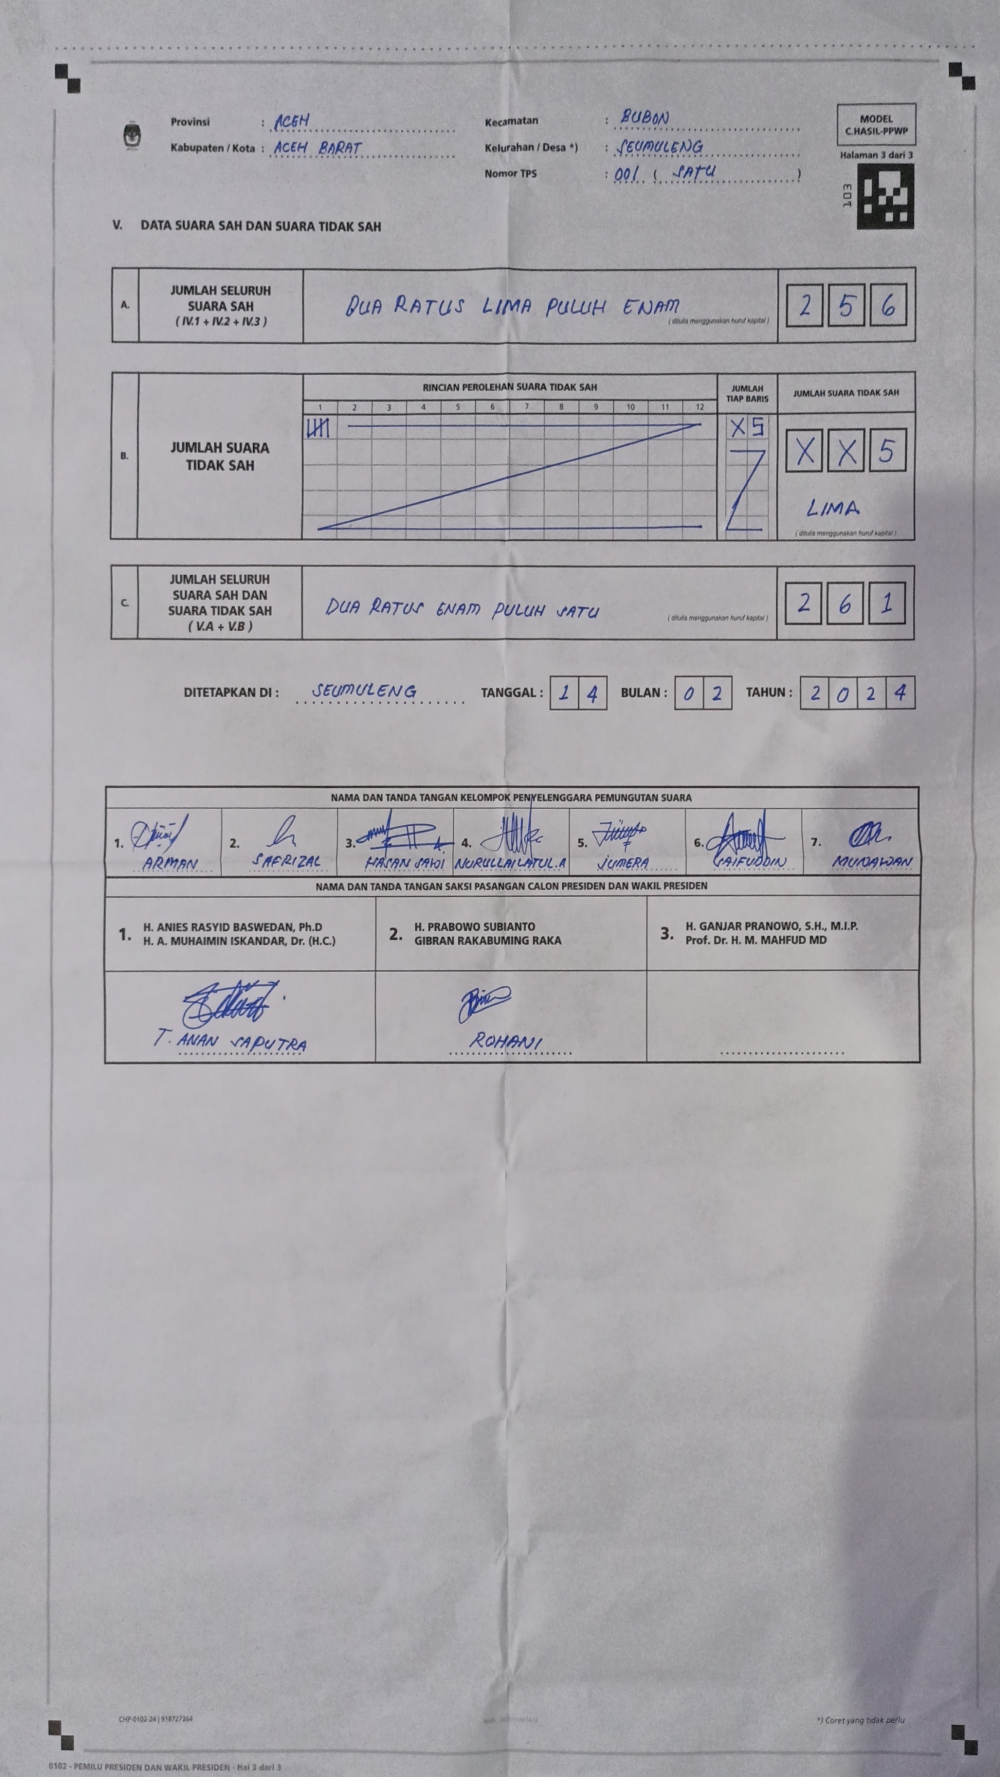 Provinsi : ACEH
Kabupaten / Kota : ACEH BARAT
Kecamatan : BUBON
Kelurahan / Desa *) : SEUMULENG
Nomor TPS : 001 ( SATU )
MODEL
C.HASIL-PPWP
Halaman 3 dari 3
103
V. DATA SUARA SAH DAN SUARA TIDAK SAH
A. JUMLAH SELURUH
SUARA SAH
( IV.1 + IV.2 + IV.3 )
DUA RATUS LIMA PULUH ENAM
( ditulis menggunakan huruf kapital )
2 5 6
RINCIAN PEROLEHAN SUARA TIDAK SAH
JUMLAH
TIAP BARIS
JUMLAH SUARA TIDAK SAH
1 2 3 4 5 6 7 8 9 10 11 12
B. JUMLAH SUARA
TIDAK SAH
X 5
X X 5
LIMA
( ditulis menggunakan huruf kapital )
C. JUMLAH SELURUH
SUARA SAH DAN
SUARA TIDAK SAH
( V.A + V.B )
DUA RATUS ENAM PULUH SATU
( ditulis menggunakan huruf kapital )
2 6 1
DITETAPKAN DI : SEUMULENG TANGGAL : 1 4 BULAN : 0 2 TAHUN : 2 0 2 4
NAMA DAN TANDA TANGAN KELOMPOK PENYELENGGARA PEMUNGUTAN SUARA
1. 2. 3. 4. 5. 6. 7.
ARMAN SAFRIZAL HASAN SAWI NURULLAILATUL.A JUMERA SAIFUDDIN MUNAWAN
NAMA DAN TANDA TANGAN SAKSI PASANGAN CALON PRESIDEN DAN WAKIL PRESIDEN
1. H. ANIES RASYID BASWEDAN, Ph.D
H. A. MUHAIMIN ISKANDAR, Dr. (H.C.)
2. H. PRABOWO SUBIANTO
GIBRAN RAKABUMING RAKA
3. H. GANJAR PRANOWO, S.H., M.I.P.
Prof. Dr. H. M. MAHFUD MD
T. ANAN SAPUTRA
ROHANI
CHP-0102-24 | 918727264
*) Coret yang tidak perlu
0102 - PEMILU PRESIDEN DAN WAKIL PRESIDEN - Hal 3 dari 3